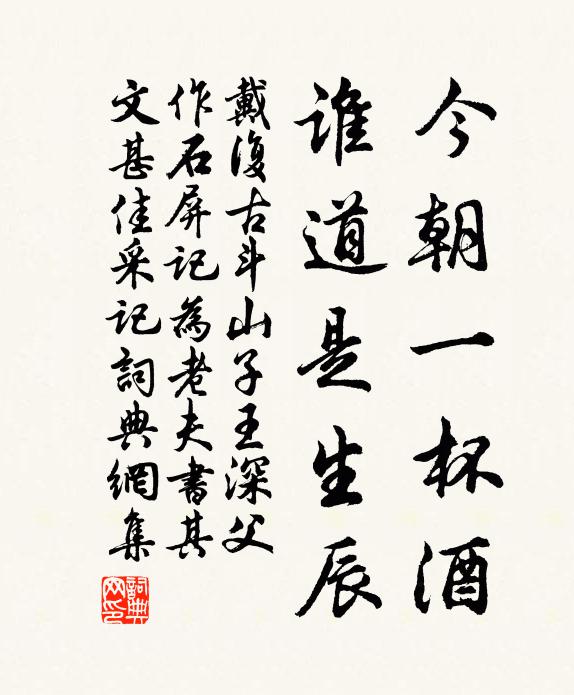 今朝一杯酒
誰道是生辰
戴復古斗山子王深父
作石屏記為老夫書其
文甚佳采記詞典網集
詞典
网印